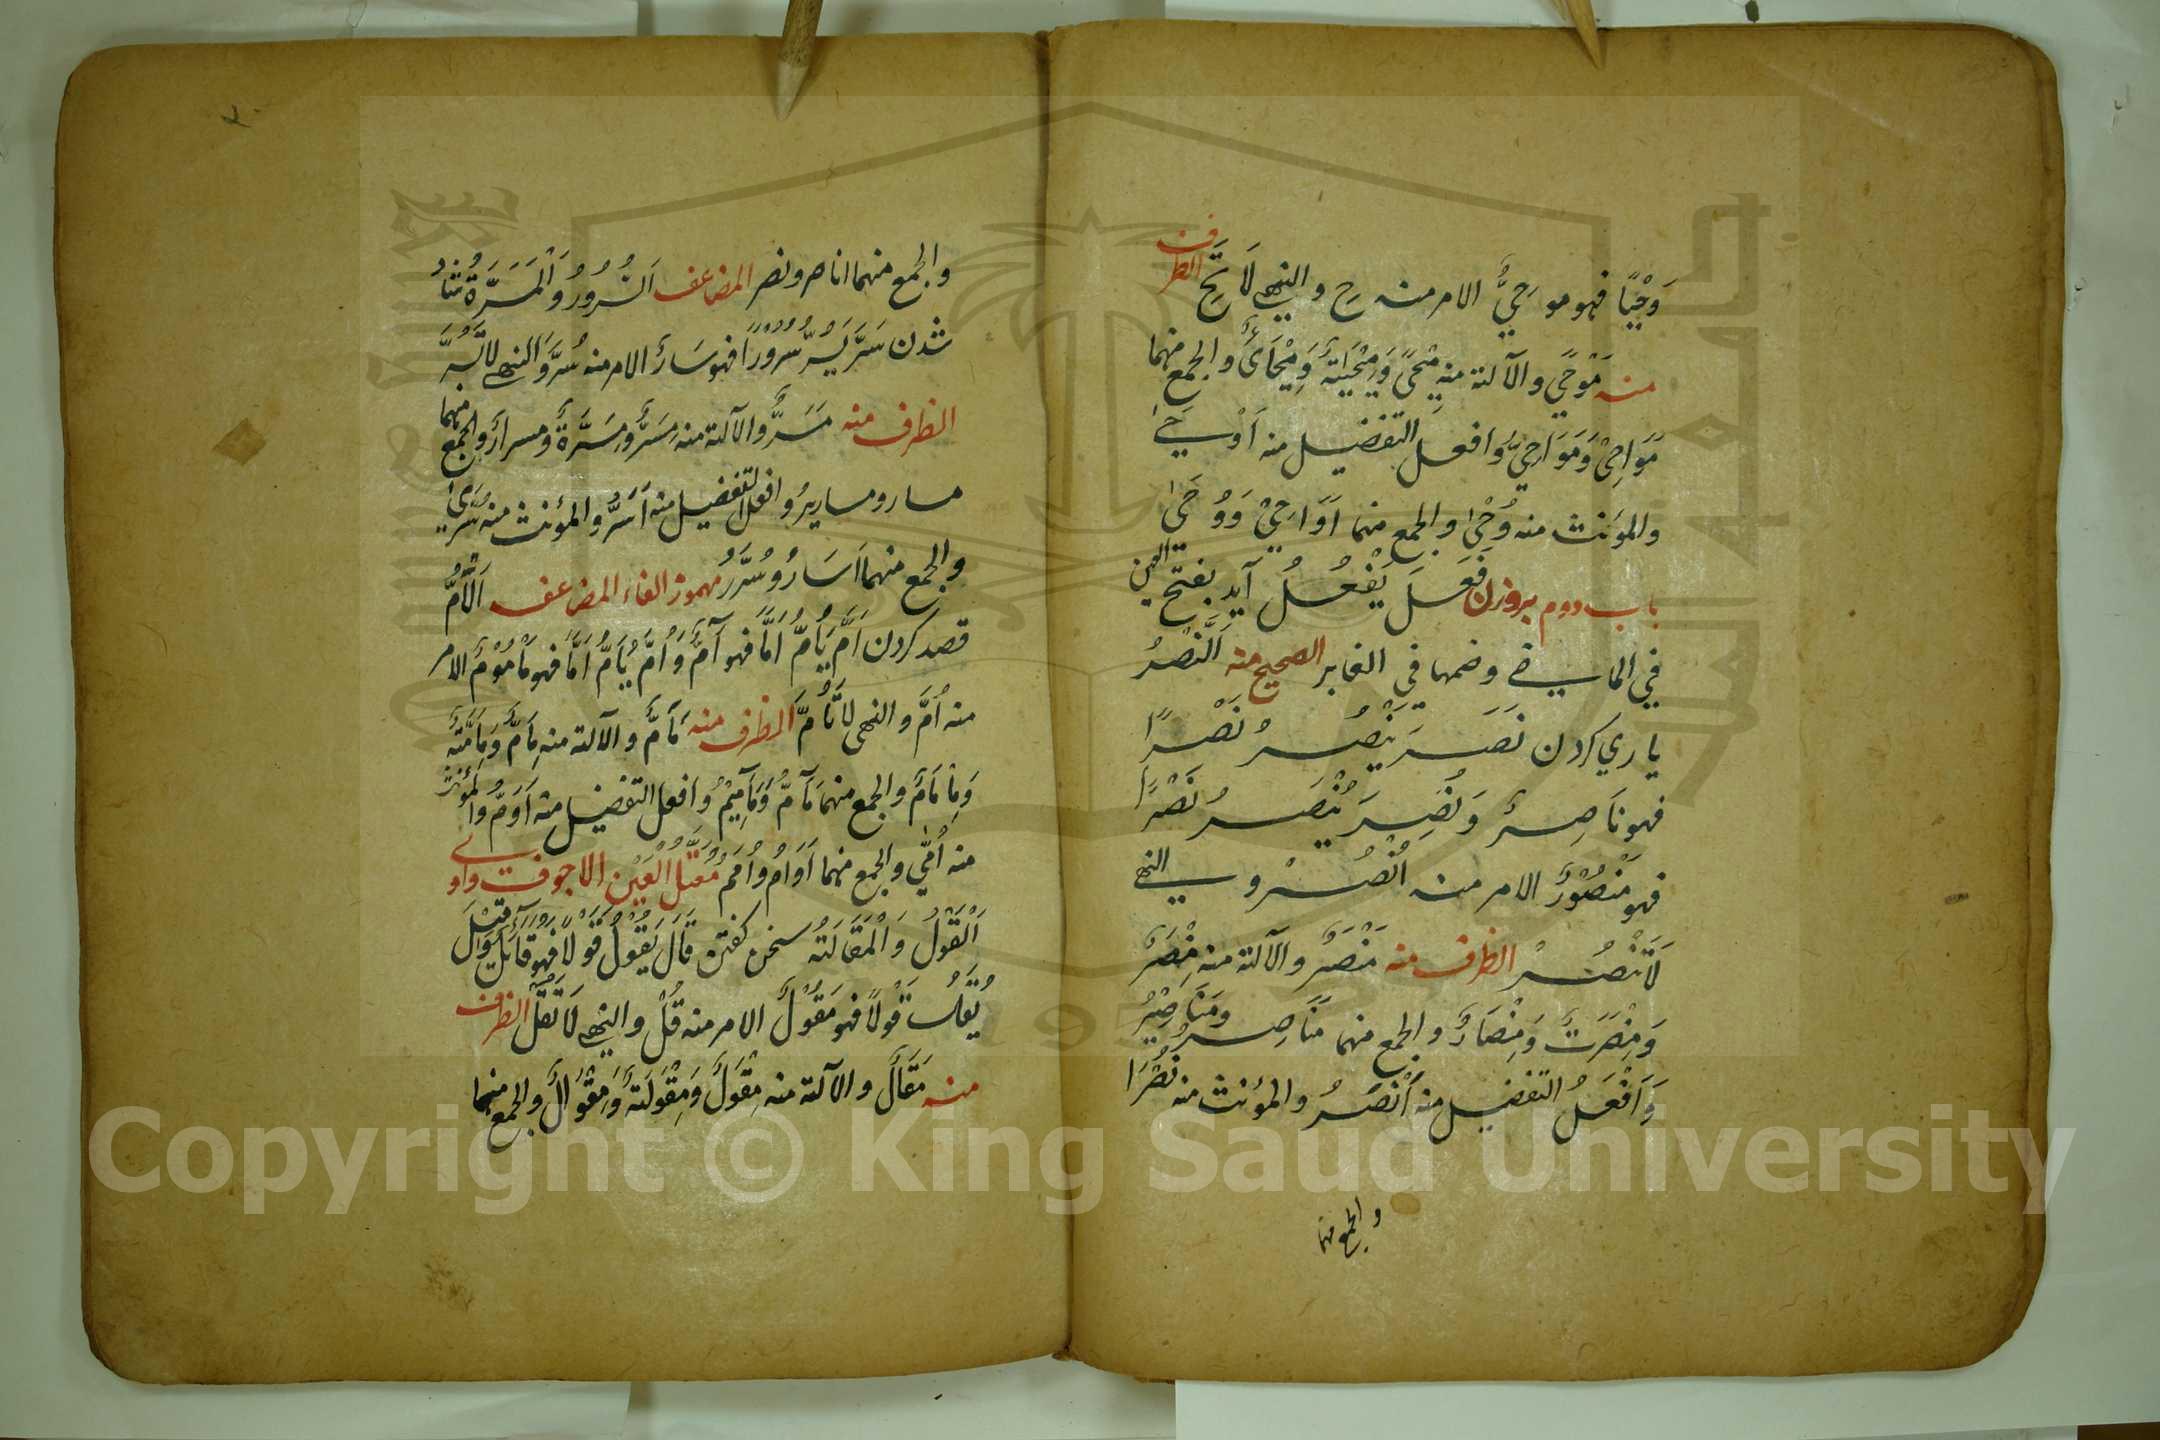 وَحْيًا فهو موحِيٌّ الامر منه حِ والنهي لَا تَحِ الظرف
منه مَوْحًي والآلتة منه مِيْحًى وَمِيْحَيَتةٌ وَمِيْحَاىٌ والجمع منهما
مَوَاحِيْ وَمَوَاحِيُّ وافعل التفضيل منه اَوْحَىٰ
والمؤنث منه وُحْىٰ والجمع منهما اَوَاحِيْ وَوُحَىٰ
باب دوم بروزن فَعَلَ يَفْعُلُ آيد بفتح العين
في الماضي وضمها في الغابر الصحيح منه اَلنَّصْرُ
ياري كردن نَصَرَ يَنْصُرُ نَصْرًا
فهو نَاصِرٌ وَنُصِرَ يُنْصَرُ نَصْرًا
فهو مَنْصُوْرٌ الامر منه اُنْصُرْ وفي النهي
لَاتَنْصُرْ الظرف منه مَنْصَرٌ والآلتة منه مِنْصَرٌ
وَمِنْصَرَتٌ وَمِنْصَارٌ والجمع منهما مَنَاصِرُ ومَنَاصِيْرُ
وَاَفْعَلُ التفضيل منه اَنْصَرُ والمؤنث منه نُصْرَا
والجمع منهما
والجمع منهما اناصر ونصر المضاعف اَلسُّرُورُ وَالْمَسَرَّةُ شاد
شدن سَرَّ يَسُرُّ سُرُوْرًا فهو سَارٌّ الامر منه سُرَّ وَالنهي لاتَسُرَّ
الظرف منه مَسَرٌّ والآلتة منه مِسَرٌّ ومِسَرَّةٌ ومسرارٌ والجمع منهما
مسار ومساريرُ وافعل التفضيل منه اَسَرُّ والمؤنث منه سُرَّىٰ
والجمع منهما اَسَارُ وسُرَرُ مهموز الفاء المضاعف اَلْاَمُّ
قصد كردن اَمَّ يَأُمُّ اَمًّا فهو آمٌّ وَاُمَّ يُاَمُّ اَمًّا فهو مَأْمُوْمٌ الامر
منه اُمَّ والنهى لاتَأُمَّ اَلظرف منه مَأَمٌّ والآلتة منه مِاَمٌّ وَمِاَمَّتةٌ
وَمِاْمَامٌ والجمع منهما مَآمُّ وَمَآمِيْمُ وافعل التفضيل منه اَوَمُّ والمؤنث
منه اُمّٰي والجمع منهما اَوَامُ واُمَمُ مُعْتَلُّ الْعَيْنِ الاجوف واوي
اَلْقَوْلُ وَالْمَقَالَتةُ سخن كفتن قَالَ يَقُوْلُ قَوْلًا فهُوَ قَائِلٌ وَقِيْلَ
يُقَالُ قَوْلًا فهو مَقُوْلٌ الامر منه قُلْ والنهي لَاتَقُلْ الظرف
منه مَقَالٌ والآلتة منه مِقْوَلٌ وَمِقْوَلَتةٌ وَمِقْوَالٌ والجمع منهما
Copyright © King Saud University